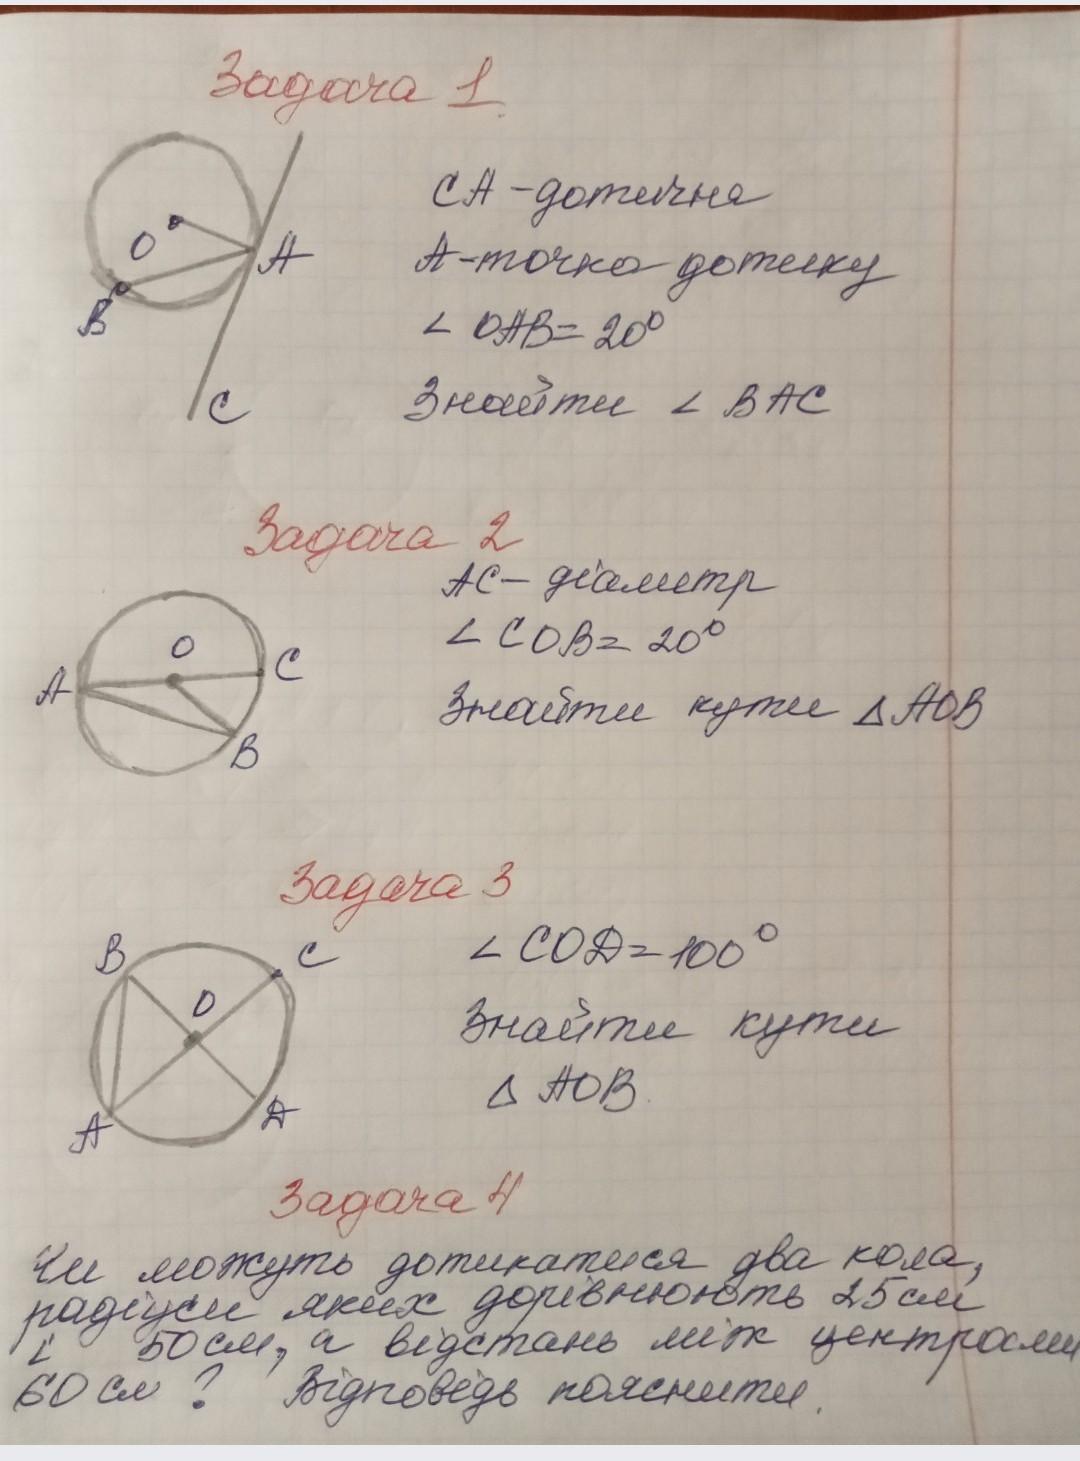 Задача 1.
СА - дотична
O
A
А - точка дотику
B
∠ OAB = 20°
C
Знайти ∠ BAC
Задача 2
AC - діаметр
∠ COB = 20°
O
A
C
Знайти кути △ AOB
B
Задача 3
B
C
∠ COD = 100°
O
Знайти кути
△ AOB.
A
D
Задача 4
Чи можуть дотикатися два кола,
радіуси яких дорівнюють 25 см
і 50 см, а відстань між центрами
60 см? Відповідь пояснити.